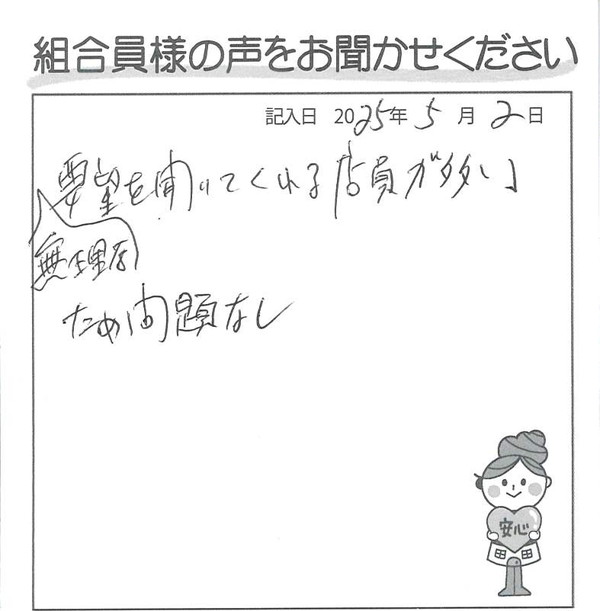 組合員様の声をお聞かせください
記入日 2025年 5月 2日
無理な要望を聞いてくれる店員が多い
ため問題なし
安心